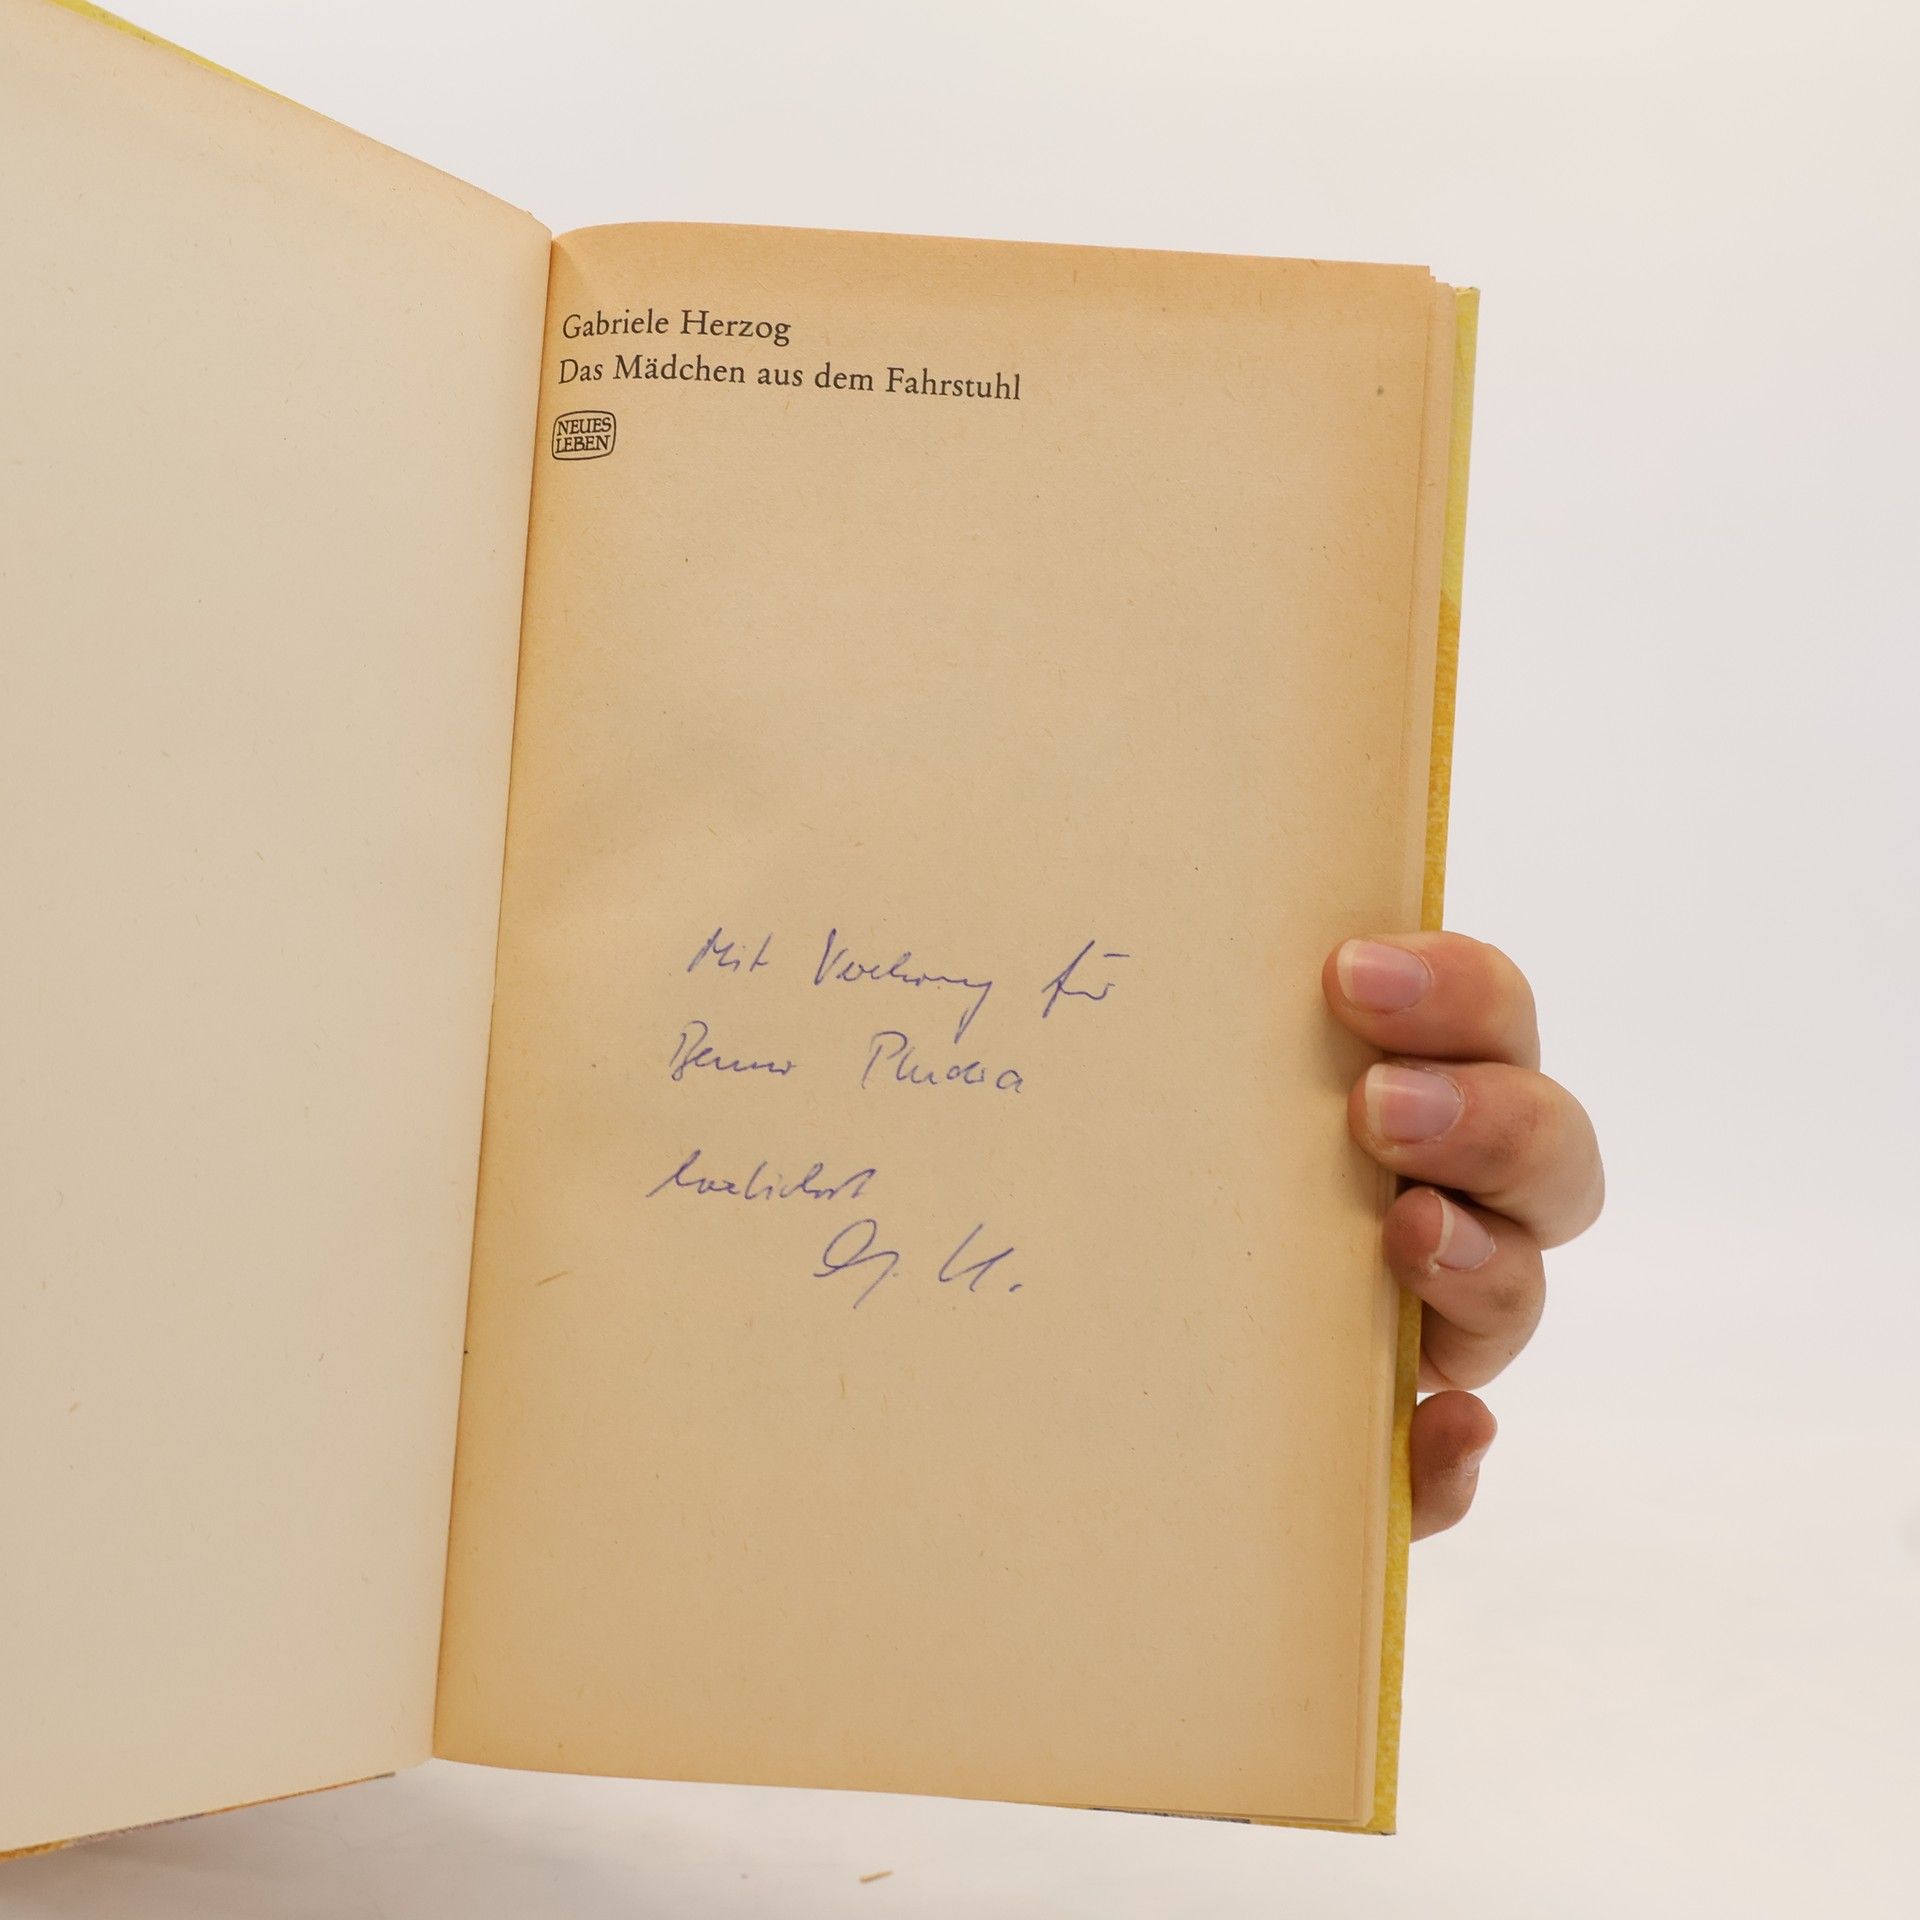 Gabriele Herzog
Das Mädchen aus dem Fahrstuhl
NEUES
LEBEN
Mit Verehrung für
Benno Pludra
herzlichst
G. H.